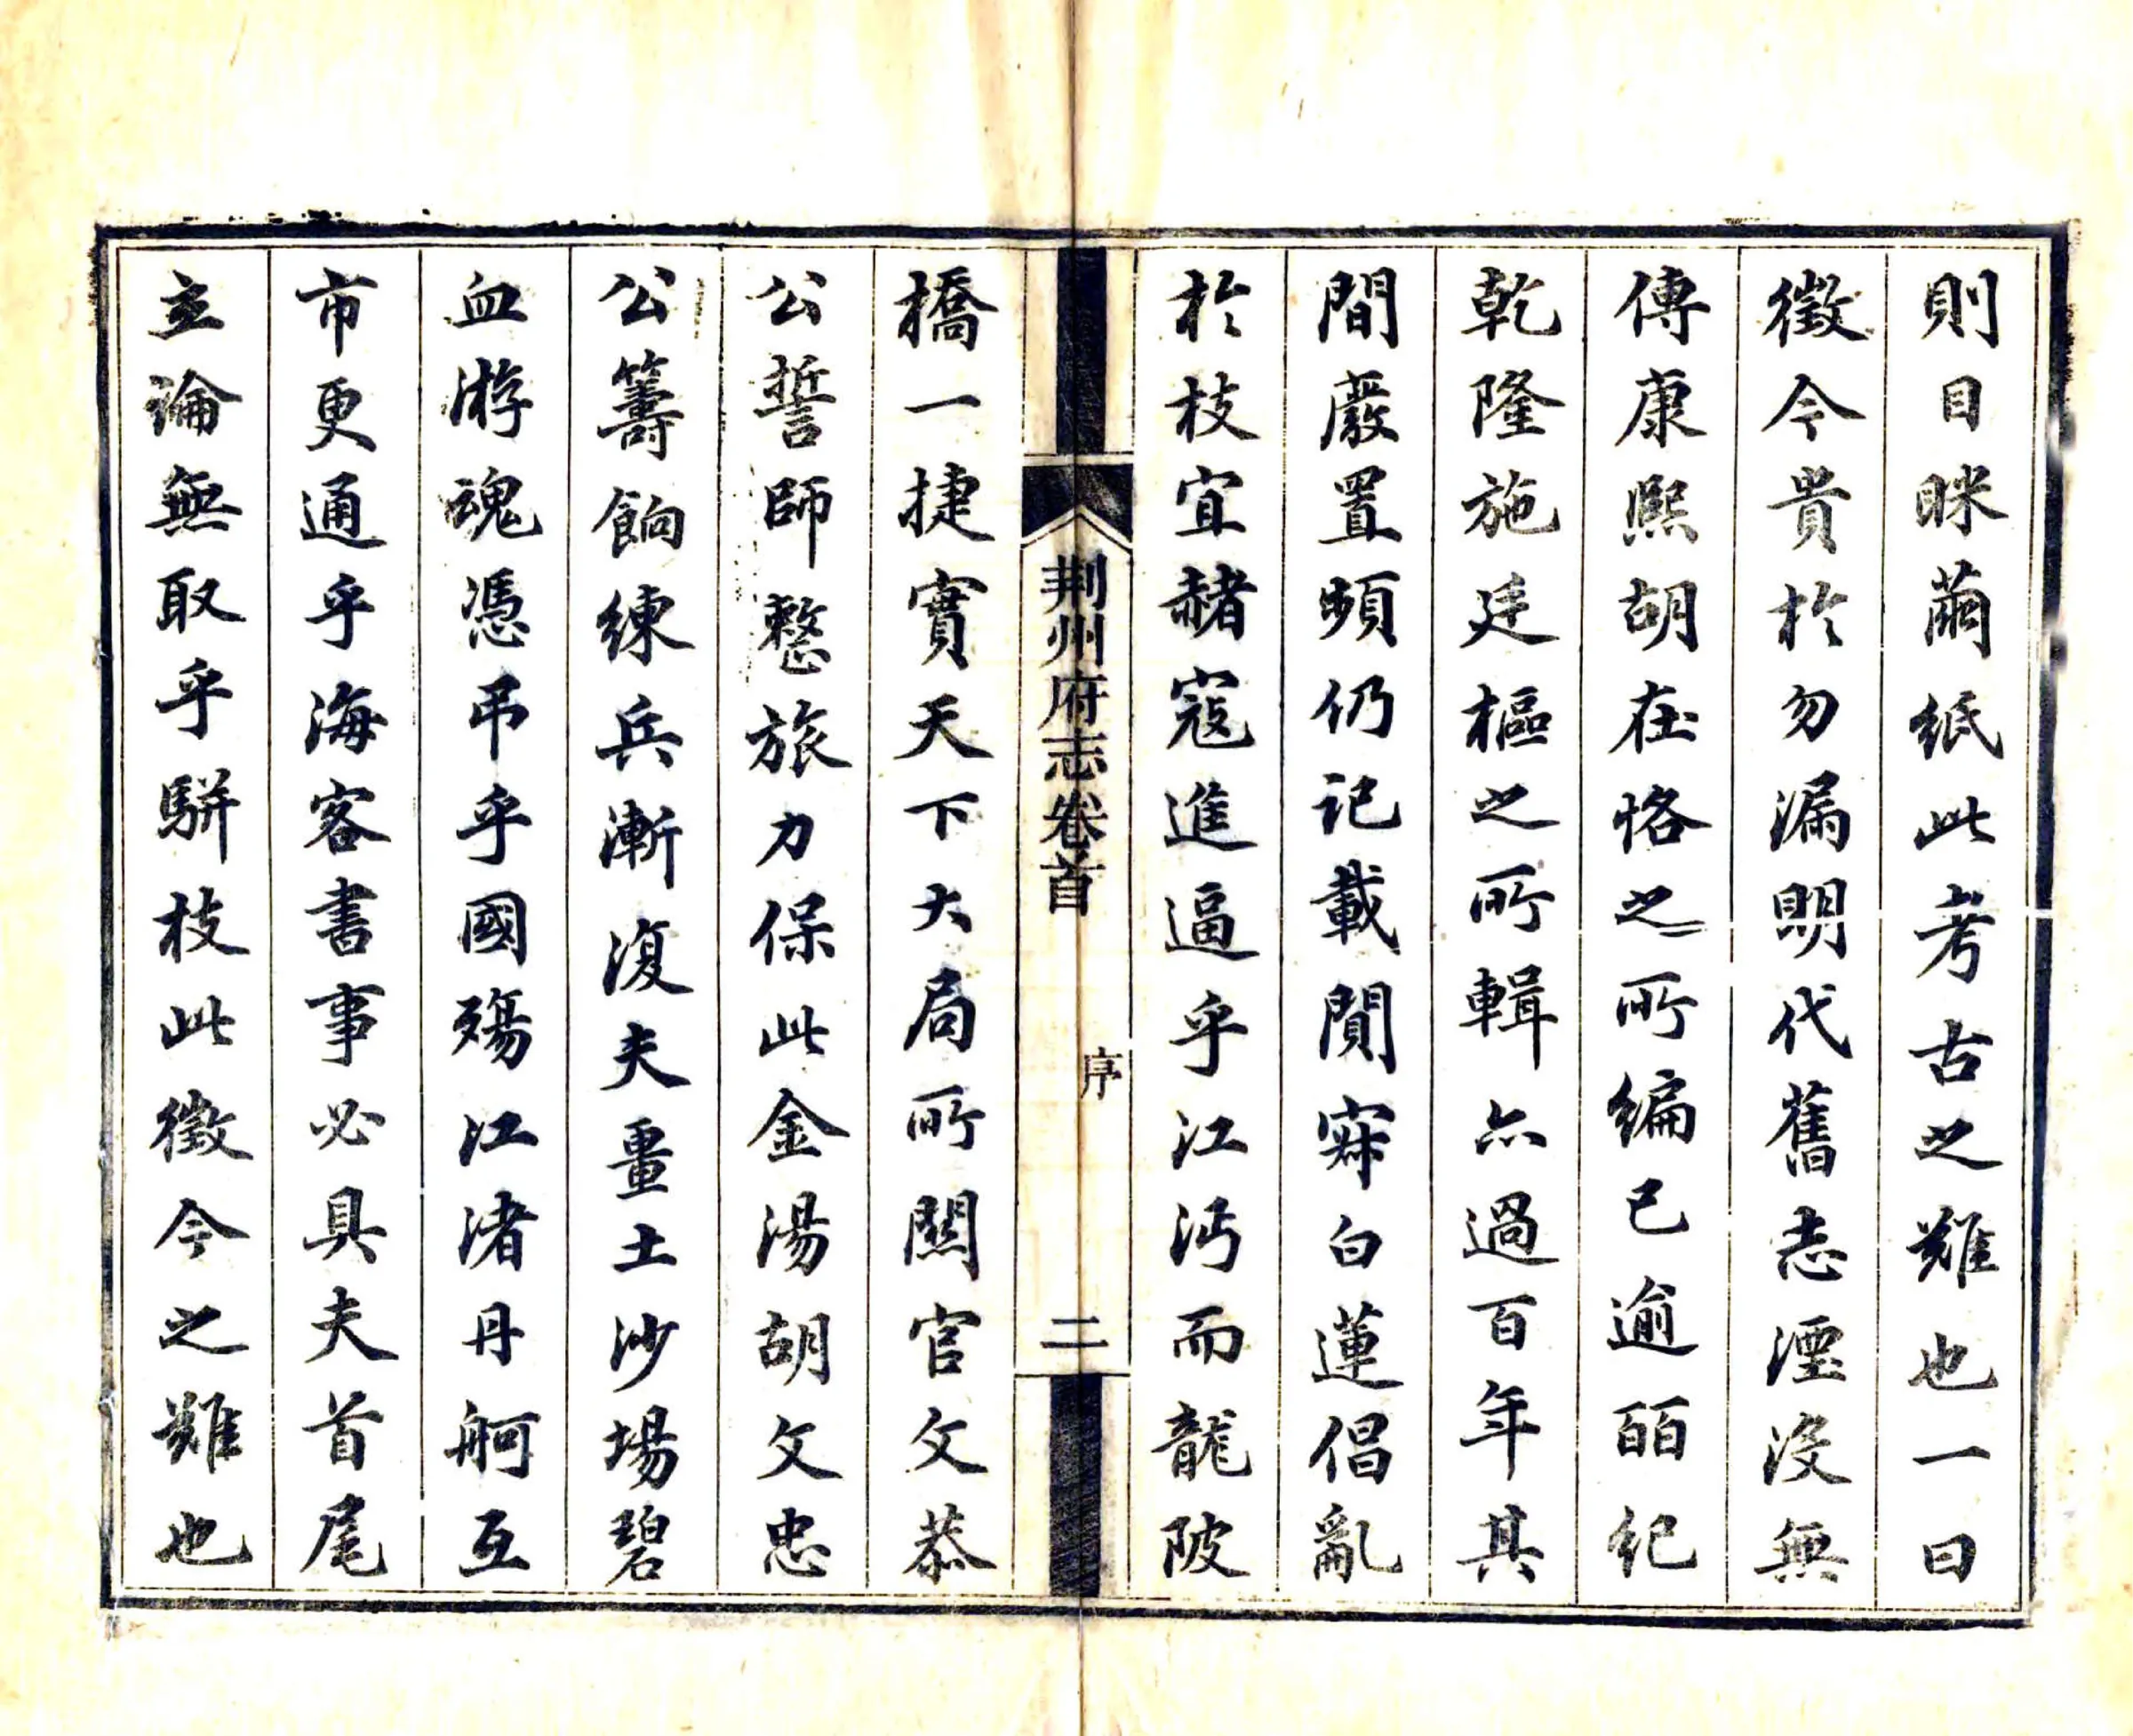 則目眯繭紙此考古之難也一曰
徵今貴於勿漏朙代舊志湮沒無
傳康熙胡在恪之所編已逾皕紀
乾隆施廷樞之所輯亦過百年其
間廢置頻仍記載闃寂白蓮倡亂
於枝宜赭寇進逼乎江沔而龍陂
荆州府志卷首
序
二
橋一捷實天下大局所關官文恭
公誓師整旅力保此金湯胡文忠
公籌餉練兵漸復夫畺土沙場碧
血游魂憑弔乎國殤江渚丹舸互
市更通乎海客書事必具夫首尾
立論無取乎駢枝此徵今之難也